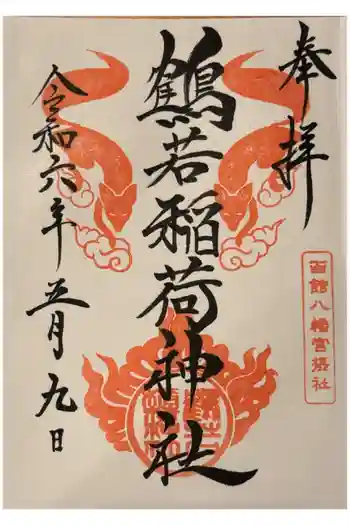 奉拝
函館八幡宮摂社
鶴若稲荷神社
令和六年五月九日